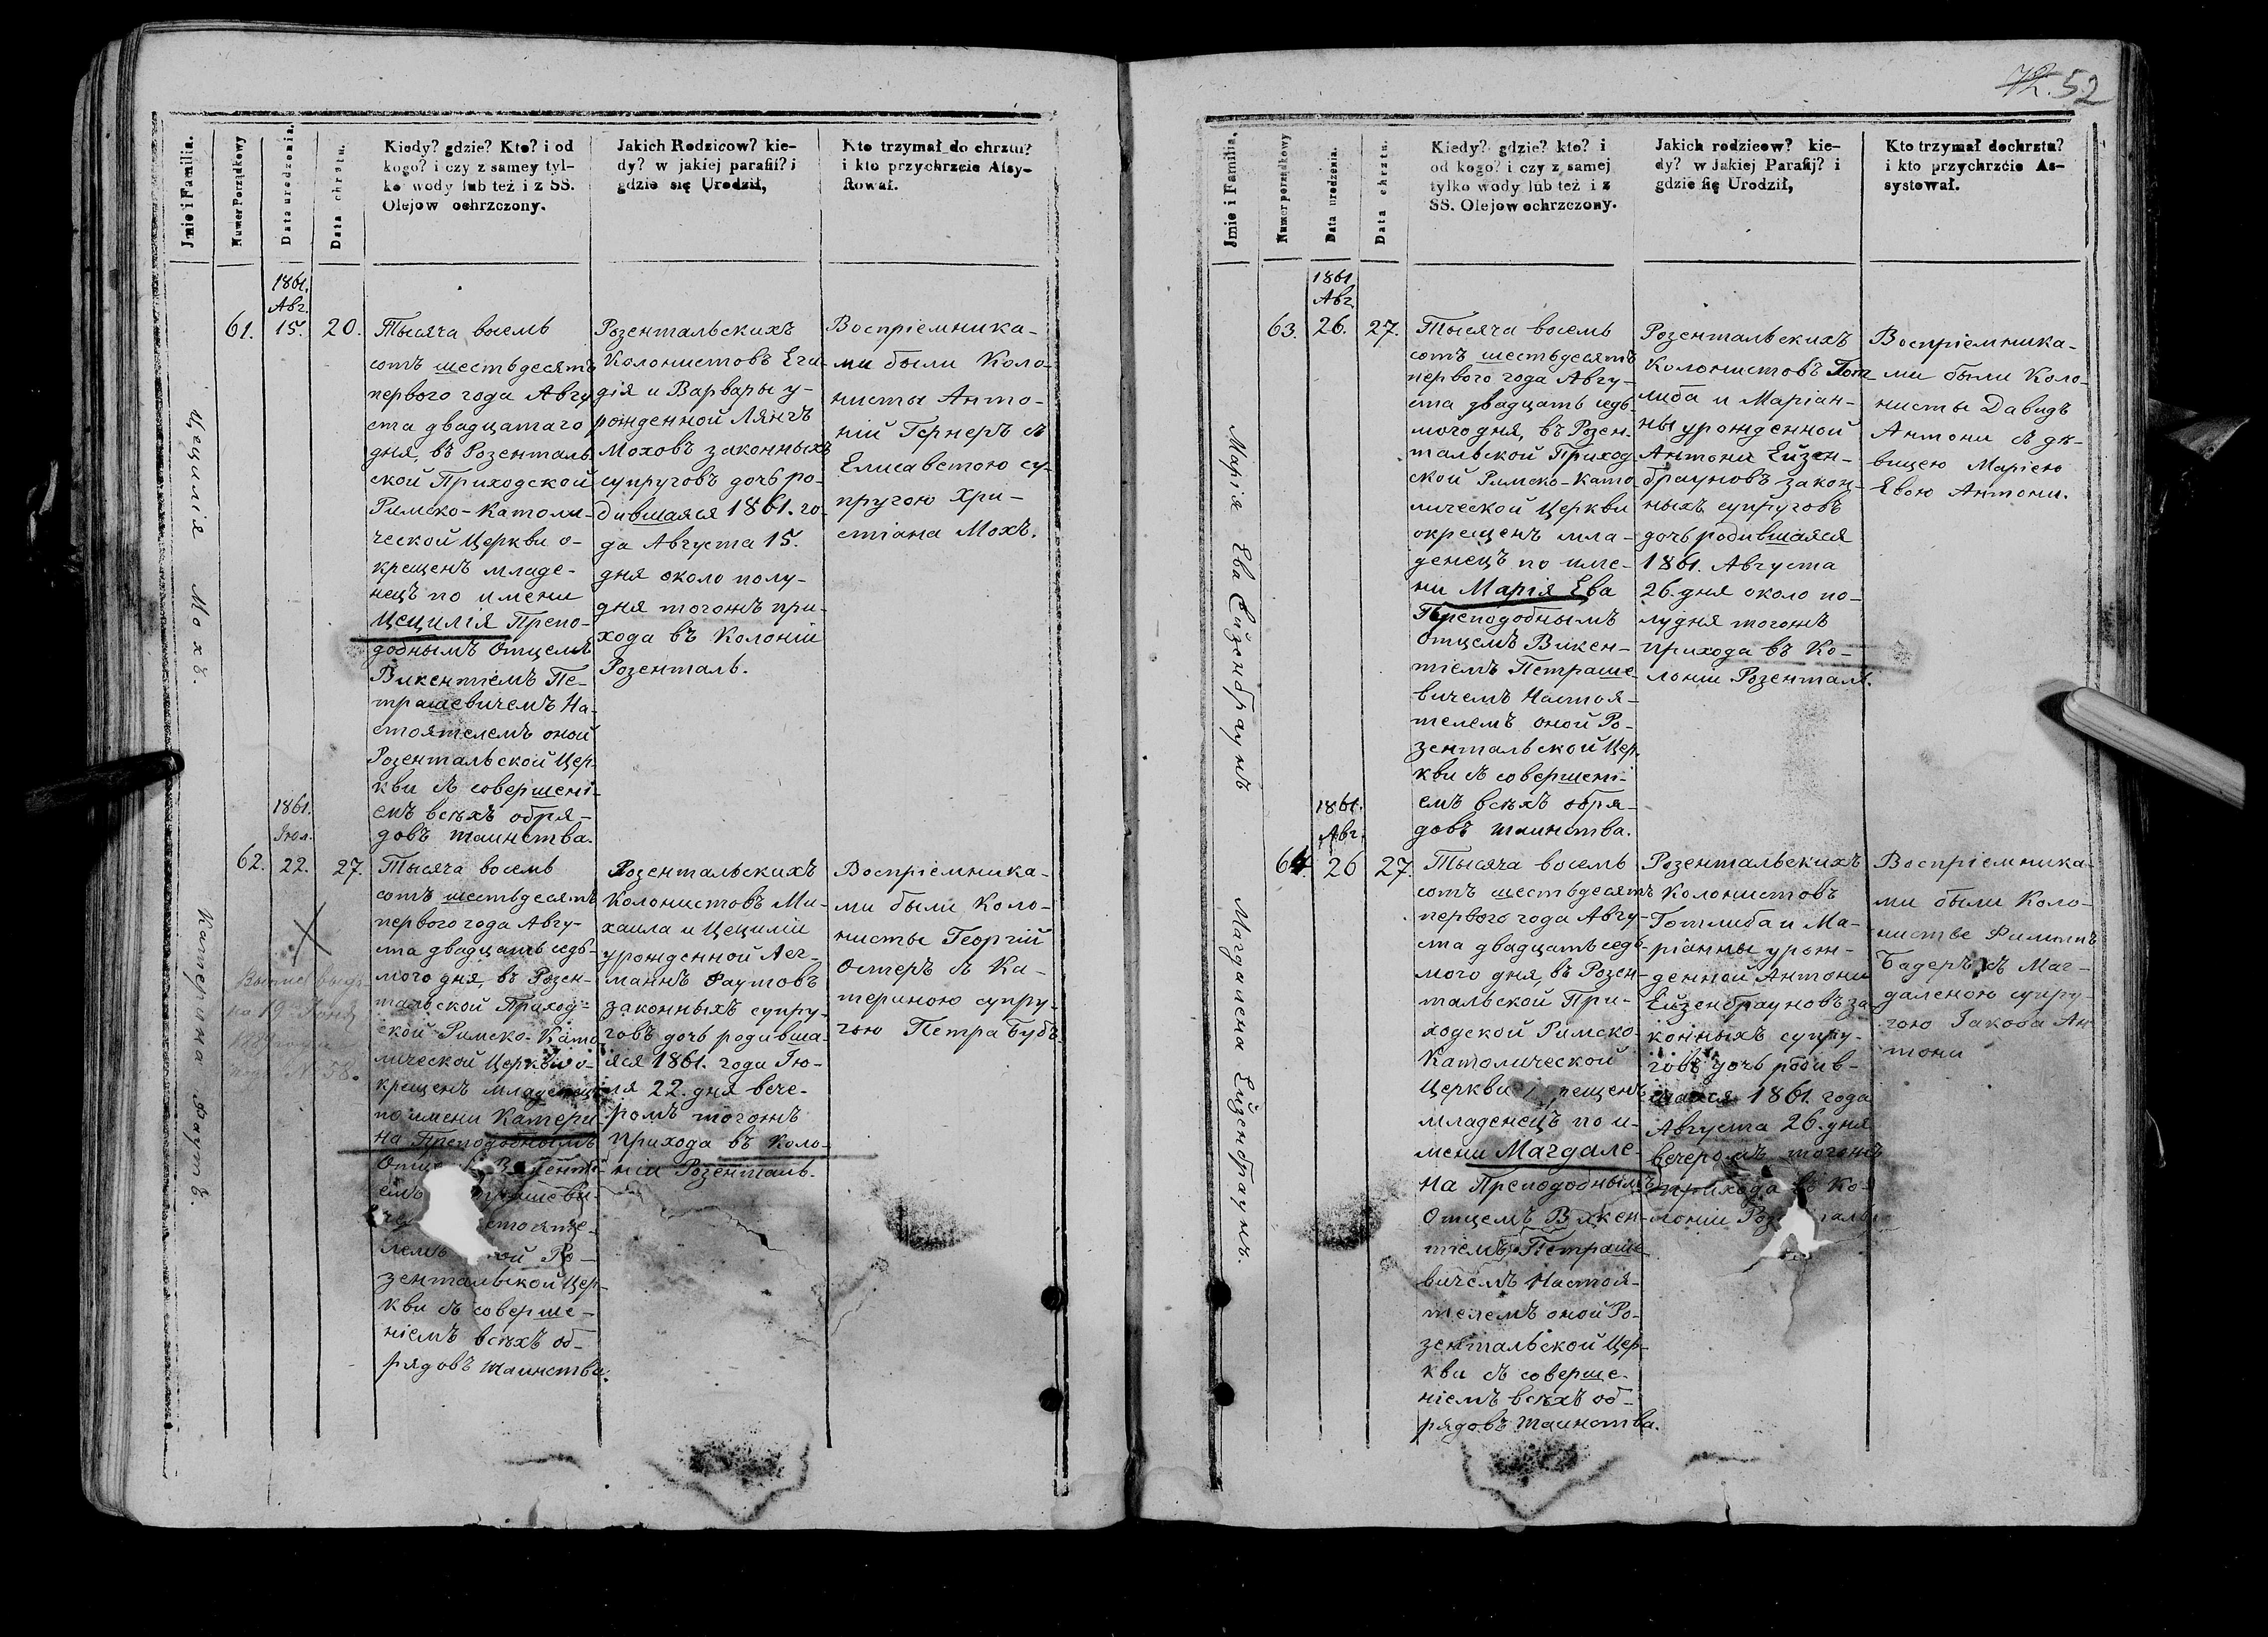 72. 52
Jmie i Familia.
Numer Porządkowy
Data urodzenia.
Data chrztu.
Kiedy? gdzie? Kto? i od
kogo? i czy z samey tyl-
ko wody lub też i z SS.
Olejow ochrzczony.
Jakich Rodzicow? kie-
dy? w jakiej parafii? i
gdzie się Urodził,
Kto trzymał do chrztu?
i kto przychrzcie Assy-
stował.
Цецилія Мохъ.
1861.
Авг.
61. 15. 20.
Тысяча восемь
сотъ шестьдесятъ
перваго года Авгу
ста двадцатаго
дня, въ Розенталь
ской Приходской
Римско-Католи-
ческой Церкви о-
крещенъ младе-
нецъ по имени
Цецилія Препо-
добнымъ Отцемъ
Викентіемъ Пе-
трашевичемъ На-
стоятелемъ оной
Розентальской Цер-
кви съ совершені-
емъ всѣхъ обря-
довъ таинства.
Розентальскихъ
Колонистовъ Еги-
дія и Варвары у-
рожденной Лянгъ
Моховъ законныхъ
супруговъ дочь ро-
дившаяся 1861. го-
да Августа 15.
дня около полу-
дня тогожъ при-
хода въ Колоніи
Розенталь.
Воспріемника-
ми были Коло-
нисты Анто-
ній Гернеръ съ
Елисаветою су-
пругою Хри-
стіана Мохъ.
Катерина Фаутъ.
1861.
Іюл.
62. 22. 27.
на 19 Іюня
№ 58.
Тысяча восемь
сотъ шестьдесятъ
перваго года Авгу-
ста двадцать седь-
мого дня, въ Розен-
тальской Приход-
ской Римско-Като
лической Церкви о-
крещенъ младенецъ
по имени Катери-
на Преподобнымъ
зентальской Цер-
кви съ соверше-
ніемъ всѣхъ об-
рядовъ таинства.
Розентальскихъ
Колонистовъ Ми-
хаила и Цециліи
урожденной Лег-
маннъ Фаутовъ
законныхъ супру-
говъ дочь родивша-
яся 1861. года Ію-
ля 22. дня вече-
ромъ тогожъ
прихода въ Коло-
ніи Розенталь.
Воспріемника-
ми были Коло-
нисты Георгій
Остеръ съ Ка-
териною супру-
гою Петра Бубъ
Jmie i Familia.
Numer porządkowy
Data urodzenia.
Data chrztu.
Kiedy? gdzie? kto? i
od kogo? i czy z samej
tylko wody lub też i z
SS. Olejow ochrzczony.
Jakich rodzicow? kie-
dy? w Jakiej Parafij? i
gdzie się Urodził,
Kto trzymał dochrztu?
i kto przychrzcie As-
systował.
Марія Ева Ейзенбраунъ
1861.
Авг.
63. 26. 27.
Тысяча восемь
сотъ шестьдесятъ
перваго года Авгу-
ста двадцать седь-
мого дня, въ Розен-
тальской Приход-
ской Римско-Като
лической Церкви
окрещенъ мла-
денецъ по име-
ни Марія Ева
Преподобнымъ
Отцемъ Викен-
тіемъ Петраше-
вичемъ Настоя-
телемъ оной Ро-
зентальской Цер-
кви съ совершені-
емъ всѣхъ обря-
довъ таинства.
Розентальскихъ
Колонистовъ Гот-
либа и Маріан-
ны урожденной
Антони Ейзен-
брауновъ закон-
ныхъ супруговъ
дочь родившаяся
1861. Августа
26. дня около по-
лудня тогожъ
прихода въ Ко-
лоніи Розенталь.
Воспріемника-
ми были Коло-
нисты Давидъ
Антони съ дѣ-
вицею Маріею
Евою Антони.
Магдалена Ейзенбраунъ.
1861.
Авг.
64. 26 27.
Тысяча восемь
сотъ шестьдесятъ
перваго года Авгу-
ста двадцать седь-
мого дня, въ Розен-
тальской При-
ходской Римско
Католической
Церкви
младенецъ по и-
мени Магдале-
на Преподобнымъ
Отцемъ Викен-
тіемъ Петраше
вичемъ Настоя-
телемъ оной Ро-
зентальской Цер-
кви съ соверше-
ніемъ всѣхъ об-
рядовъ таинства.
Розентальскихъ
Колонистовъ
Готлиба и Ма-
ріанны урож-
денной Антони
Ейзенбрауновъ за
конныхъ супру-
говъ дочь родив-
шаяся 1861. года
Августа 26. дня
вечеромъ тогожъ
прихода въ Ко-
лоніи
Воспріемника-
ми были Коло-
нисты Филиппъ
Бадеръ съ Маг-
даленою супру-
гою Іакова Ан
тони